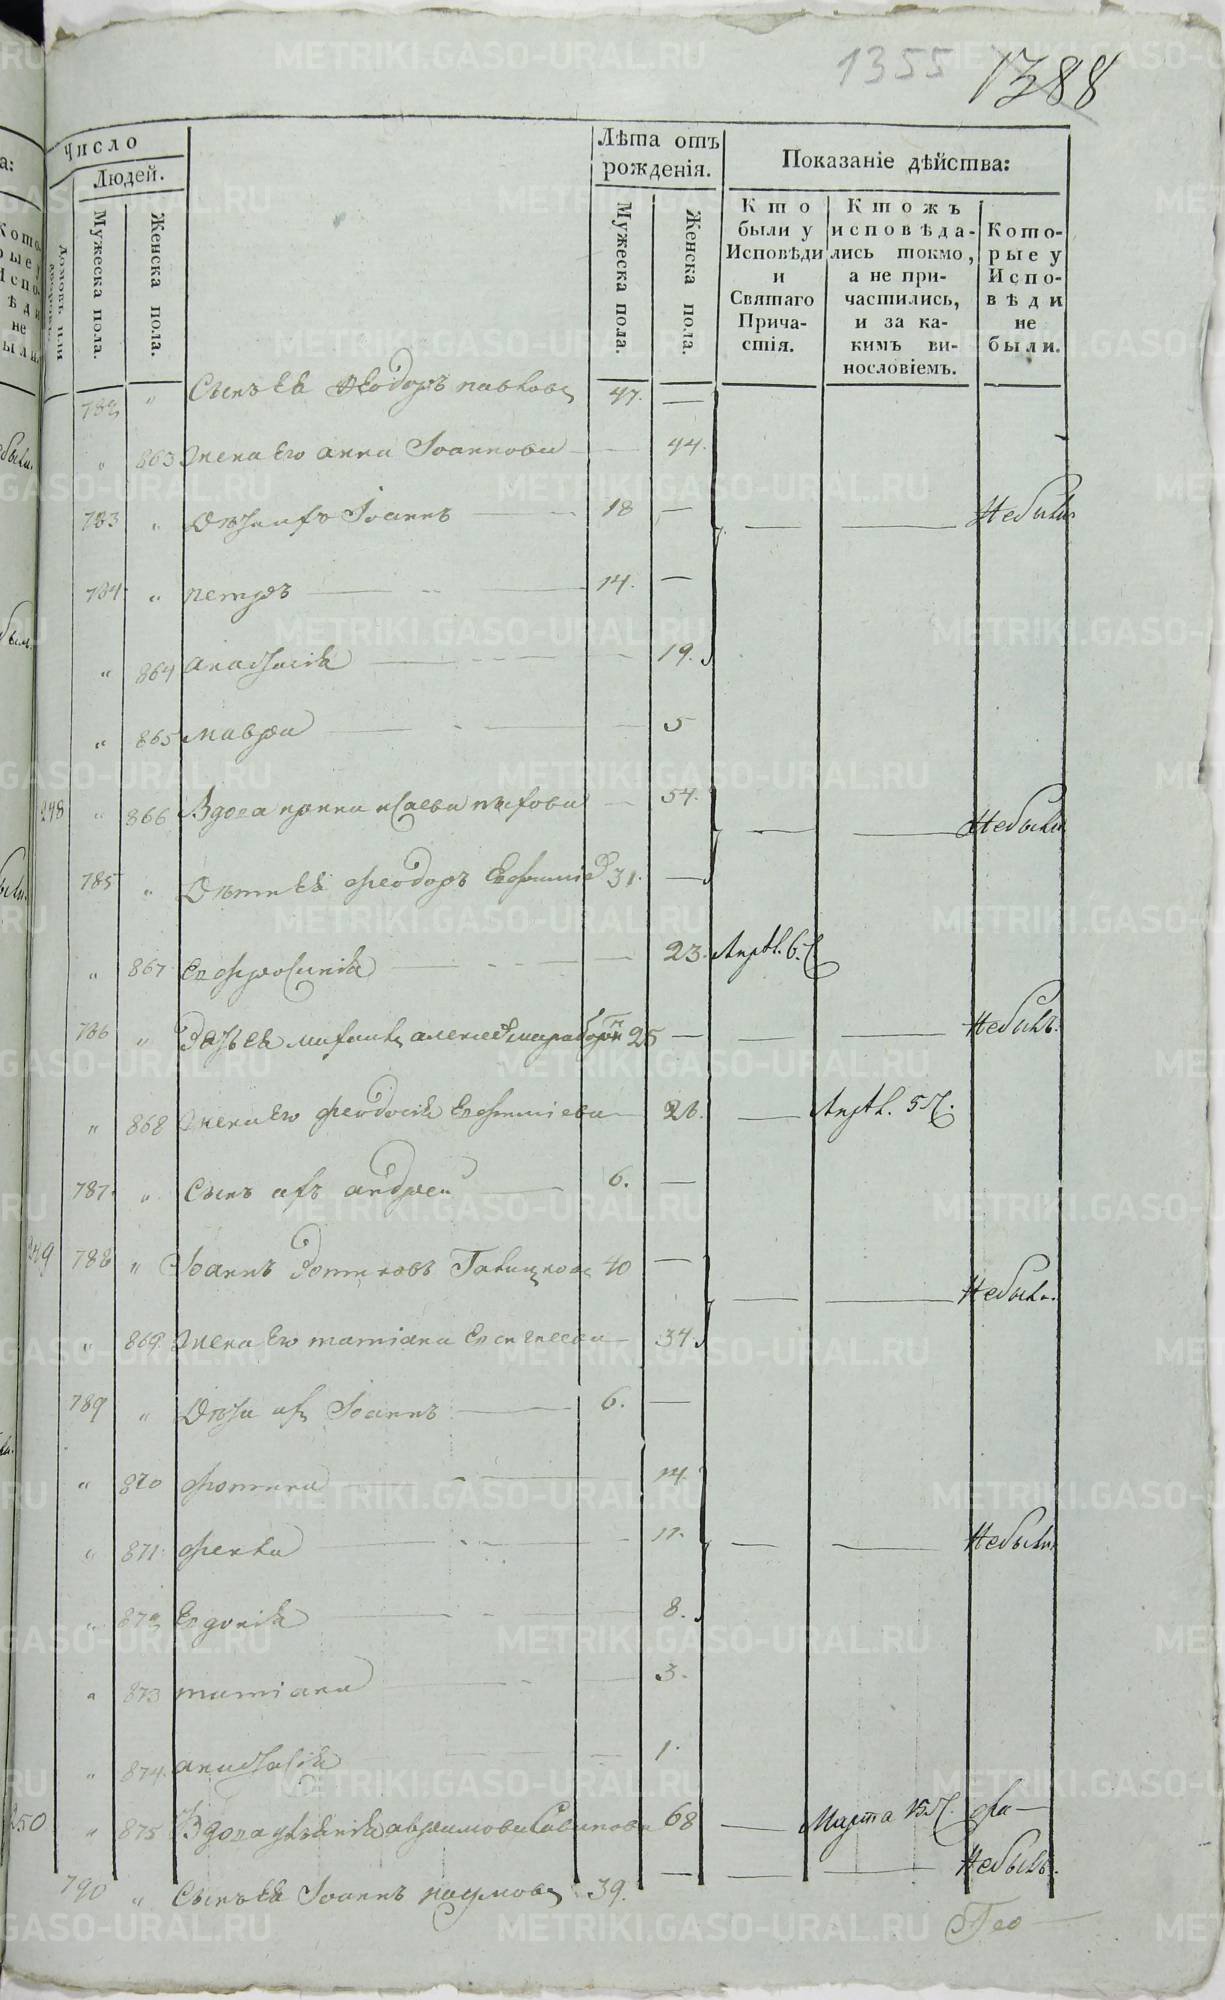 1355 1388
Число
Людей.
Мужеска пола.
Женска пола.
Лѣта отъ рожденія.
Мужеска пола.
Женска пола.
Показаніе дѣйства:
Кто были у Исповѣди и Святаго Причастія.
Ктожъ исповѣдались токмо, а не причастились, и за какимъ винословіемъ.
Которые у Исповѣди не были.
782 " Сынъ Ея Ѳеодоръ павловъ 47. —
" 863 Жена Его анна Іоаннова — 44.
783 " Дѣти ихъ Іоаннъ — 18 — Небыли
784 " петръ — 14. —
" 864 анастасія — 19.
" 865 мавра — 5
248 " 866 Вдова — 54. Небыли
785 " Дѣти Ея феодоръ 31. —
" 867 Евфросинія — 23. Апрѣл. 6. Ч
786 " Зять Ея 25 — Небылъ.
" 868 Жена Его феодосія Евфиміева — 26. — Апрѣл. 5 Ч.
787. " Сынъ ихъ андрей — 6. —
249 788 " Іоаннъ 40 — Небыли.
" 869. Жена Его татіана — 34.
789 " Дѣти ихъ Іоаннъ — 6. —
" 870 фотина — 14.
" 871 фекла — 11. Небыли
" 872 Евдокія — 8.
" 873 татіана — 3.
" 874. анастасія — 1.
250 " 875 Вдова 68 — Марта 15 Ч.
790 " Сынъ Ея Іоаннъ наумовъ 39. — Небылъ.